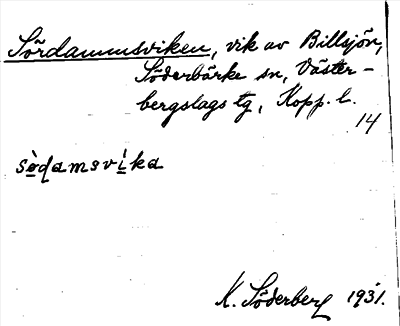 Sördammsviken, vik av Billsjön,
Söderbärke sn, Väster-
bergslags tg, Kopp. l.
14
sö̀damsvíka
K. Söderberg 1931.